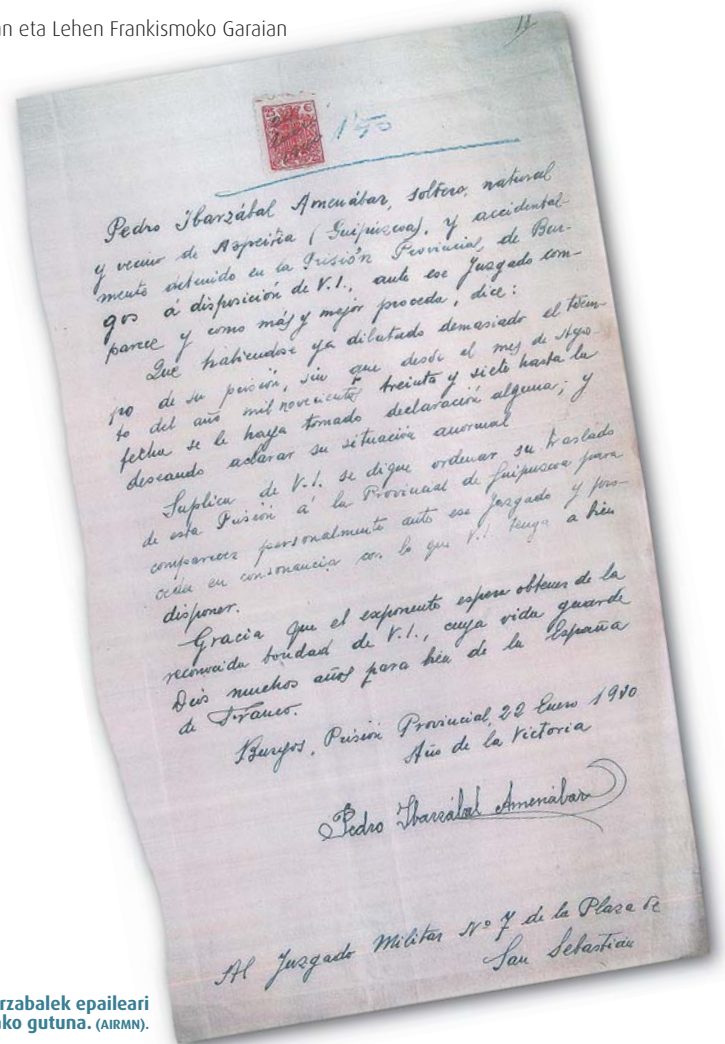 an eta Lehen Frankismoko Garaian
11
1'50
Pedro Ibarzábal Amenábar, soltero, natural
y vecino de Azpeitia (Guipúzcoa), y accidental-
mente detenido en la Prisión Provincial, de Bur-
gos á disposición de V.I., ante ese Juzgado com-
parece y como más y mejor proceda, dice:
Que habiendose ya dilatado demasiado el tiem-
po de su prisión, sin que desde el mes de Agos-
to del año mil novecientos treinta y siete hasta la
fecha se le haya tomado declaración alguna; y
deseando aclarar su situación anormal
Suplica de V.I. se digne ordenar su traslado
de esta Prisión á la Provincial de Guipuzcoa para
comparecer personalmente ante ese Juzgado y pro-
ceda en consonancia con lo que V.I. tenga a bien
disponer.
Gracia que el exponente espera obtener de la
reconocida bondad de V.I., cuya vida guarde
Dios muchos años para bien de la España
de Franco.
Burgos, Prisión Provincial, 22 Enero 1940
Año de la Victoria
Pedro Ibarzábal Amenábar
Al Juzgado Militar Nº 7 de la Plaza de
San Sebastián
rzabalek epaileari
ako gutuna. (AIRMN).